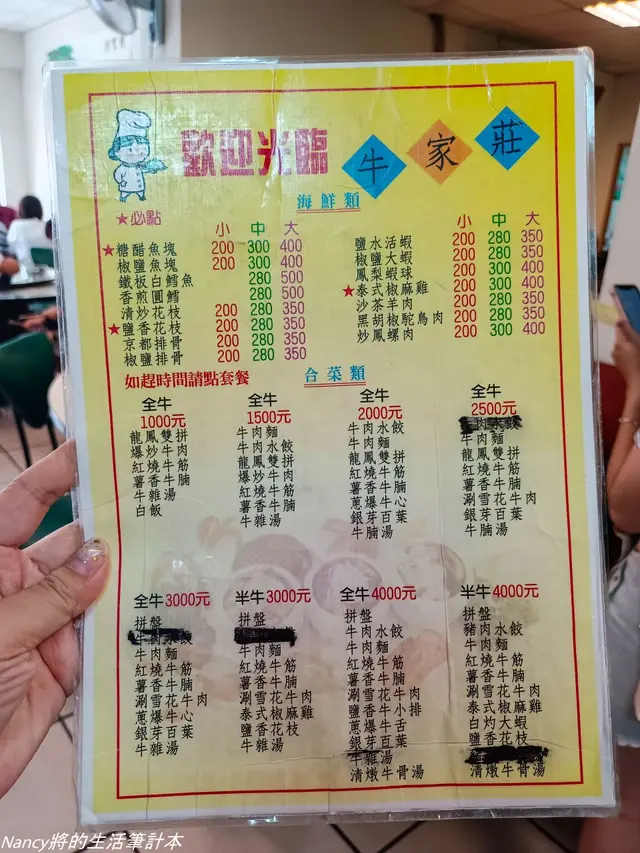 歡迎光臨 牛家莊
海鮮類
★必點 小 中 大
★糖醋魚塊 200 300 400
椒鹽魚塊 200 300 400
鐵板白鱈魚 280 500
香煎圓鱈 280 500
清炒花枝 200 280 350
★鹽香花枝 200 280 350
京都排骨 200 280 350
椒鹽排骨 200 280 350
小 中 大
鹽水活蝦 200 280 350
椒鹽大蝦 200 280 350
鳳梨蝦球 200 280 350
★泰式椒麻雞 200 280 350
沙茶羊肉 200 280 350
黑胡椒鴕鳥肉 200 280 350
炒鳳螺肉 200 300 400
如趕時間請點套餐
合菜類
全牛
1000元
龍鳳雙拼
爆炒牛肉
紅燒牛筋
薯香牛腩
牛雜湯
白飯
全牛
1500元
牛肉麵
牛肉水餃
龍鳳雙拼
爆炒牛肉
紅燒牛筋
薯香牛腩
牛雜湯
全牛
2000元
牛肉水餃
牛肉麵
龍鳳雙拼
紅燒牛筋
薯香牛腩
蔥爆牛心
銀芽百葉
牛腩湯
全牛
2500元
牛肉水餃
牛肉麵
龍鳳雙拼
紅燒牛筋
薯香牛腩
涮雪花牛肉
銀芽百葉
牛腩湯
全牛3000元
拼盤
牛肉水餃
牛肉麵
紅燒牛筋
薯香牛腩
涮雪花牛肉
蔥爆牛心
銀芽百葉
牛雜湯
半牛3000元
拼盤
牛肉麵
紅燒牛筋
薯香牛腩
涮雪花牛肉
泰式椒麻雞
鹽香花枝
牛雜湯
全牛4000元
拼盤
牛肉水餃
牛肉麵
紅燒牛筋
薯香牛腩
涮雪花牛肉
鹽香牛小排
蔥爆牛舌
銀芽百葉
牛雜湯
清燉牛骨湯
半牛4000元
拼盤
豬肉水餃
牛肉麵
紅燒牛筋
薯香牛腩
涮雪花牛肉
泰式椒麻雞
白灼大蝦
鹽香花枝
清燉牛骨湯
Nancy將的生活筆計本